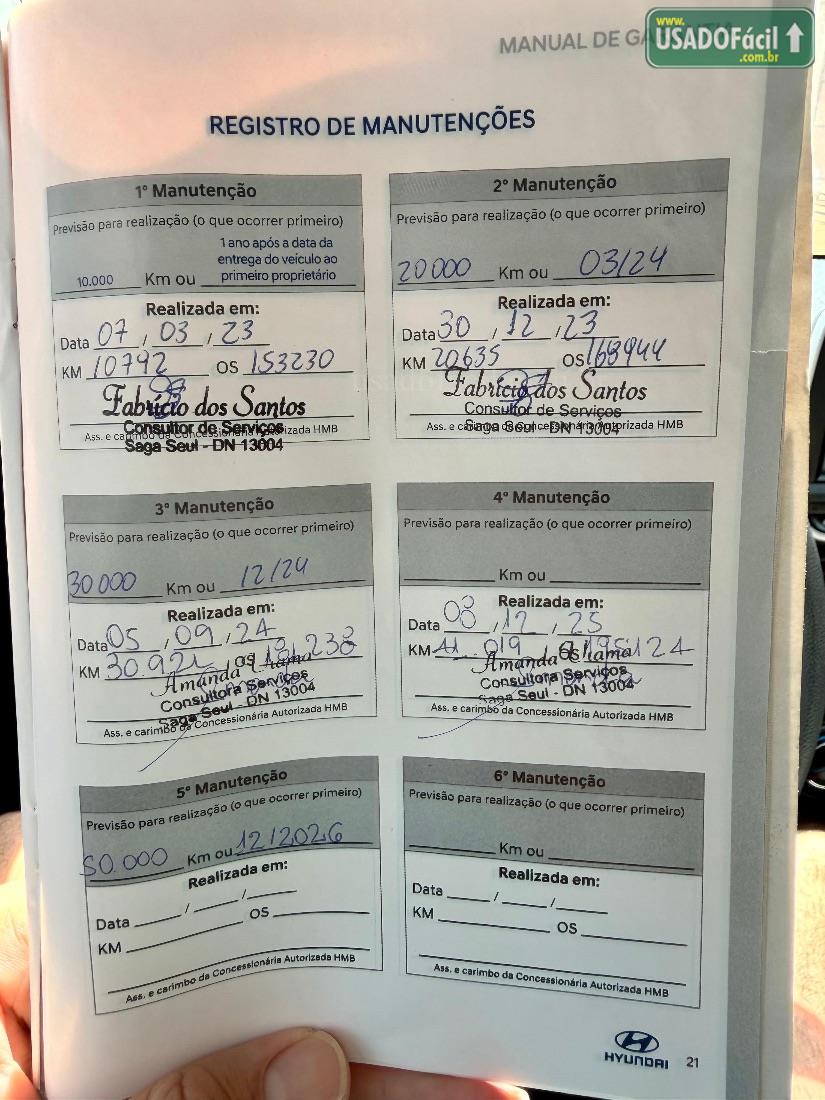 MANUAL DE
www.
USADOFácil
.com.br
REGISTRO DE MANUTENÇÕES
1º Manutenção
Previsão para realização (o que ocorrer primeiro)
10.000 Km ou 1 ano após a data da
entrega do veículo ao
primeiro proprietário
Realizada em:
Data 07 / 03 / 23
KM 10792 OS 153230
Fabrício dos Santos
Consultor de Serviços
Ass. e carimbo da Concessionária Autorizada HMB
Saga Seul - DN 13004
2º Manutenção
Previsão para realização (o que ocorrer primeiro)
20000 Km ou 03/24
Realizada em:
Data 30 / 12 / 23
KM 20635 OS 168944
Fabrício dos Santos
Consultor de Serviços
Ass. e carimbo da Concessionária Autorizada HMB
Saga Seul - DN 13004
3º Manutenção
Previsão para realização (o que ocorrer primeiro)
30000 Km ou 12/24
Realizada em:
Data 05 / 09 / 24
KM 30.921 OS
Amanda
Consultora Serviços
Saga Seul - DN 13004
Ass. e carimbo da Concessionária Autorizada HMB
4º Manutenção
Previsão para realização (o que ocorrer primeiro)
Km ou
Realizada em:
Data 08 / 12 / 25
KM 41.019 OS
Amanda
Consultora Serviços
Saga Seul - DN 13004
Ass. e carimbo da Concessionária Autorizada HMB
5º Manutenção
Previsão para realização (o que ocorrer primeiro)
50.000 Km ou 12/2026
Realizada em:
Data / /
KM OS
Ass. e carimbo da Concessionária Autorizada HMB
6º Manutenção
Previsão para realização (o que ocorrer primeiro)
Km ou
Realizada em:
Data / /
KM OS
Ass. e carimbo da Concessionária Autorizada HMB
HYUNDAI 21